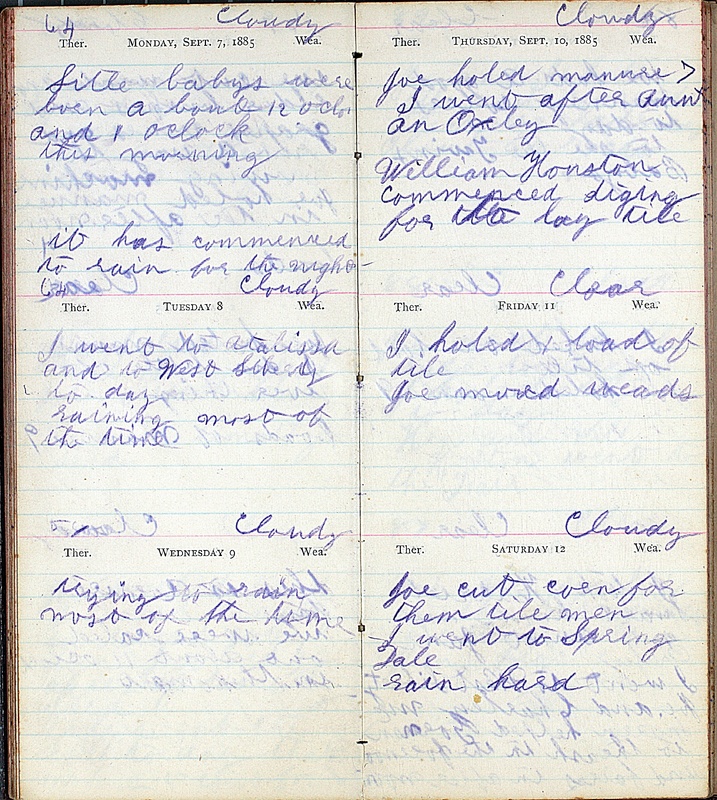 64 Cloudy
Ther. MONDAY, SEPT. 7, 1885 Wea.
little babys were
born a bout 12 oclo
and 1 oclock
this morning
it has commenced
to rain for the night
64 Cloudy
Ther. TUESDAY 8 Wea.
I went to Atalissa
and to West Liberty
to day
raining most of
the time
Cloudy
Ther. WEDNESDAY 9 Wea.
trying to rain
most of the time
Cloudy
Ther. THURSDAY, SEPT. 10, 1885 Wea.
Joe holed manure
I went after aunt
an Oxley
William Honston
commenced diging
for to lay tile
Clear
Ther. FRIDAY 11 Wea.
I holed 1 load of
tile
Joe mowed weads
Cloudy
Ther. SATURDAY 12 Wea.
Joe cut coen for
them tile men
I went to Spring
Dale
rain hard